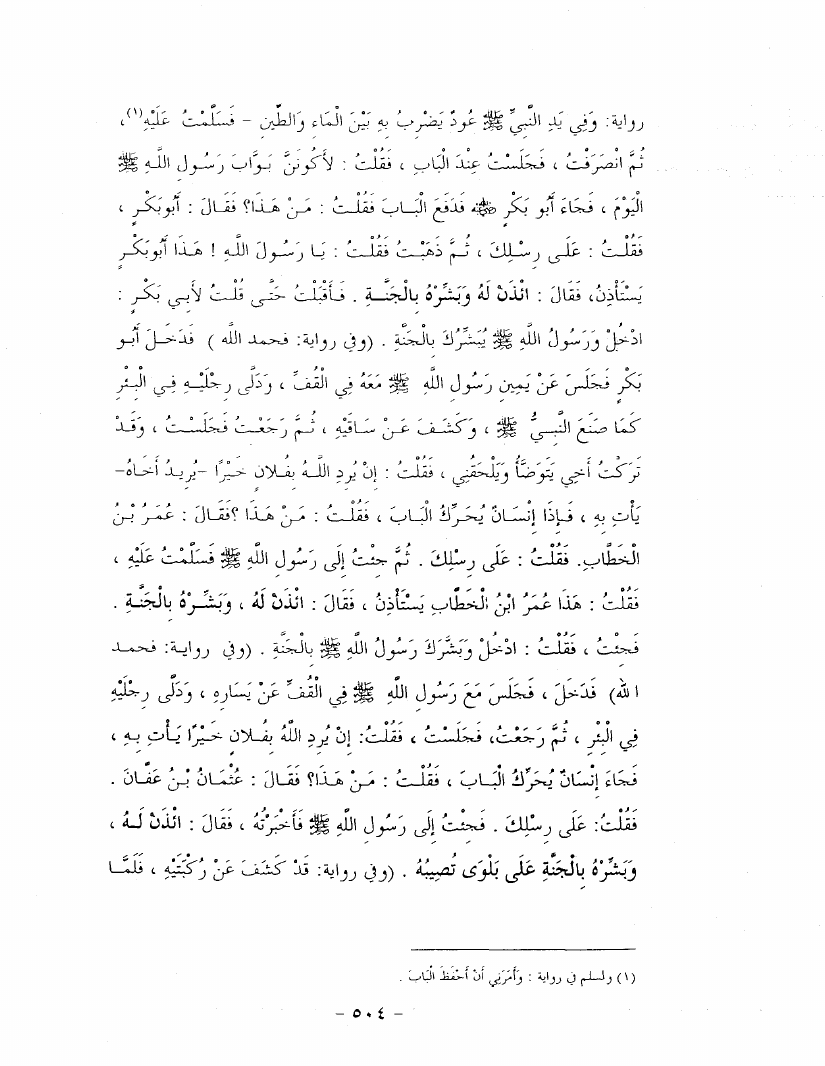 رواية: وَفِي يَدِ النَّبِيِّ ﷺ عُودٌ يَضْرِبُ بِهِ بَيْنَ الْمَاءِ وَالطِّينِ - فَسَلَّمْتُ عَلَيْهِ(١)،
ثُمَّ انْصَرَفْتُ ، فَجَلَسْتُ عِنْدَ الْبَابِ ، فَقُلْتُ : لأَكُونَنَّ بَوَّابَ رَسُولِ اللَّهِ ﷺ
الْيَوْمَ ، فَجَاءَ أَبُو بَكْرٍ ﷺ فَدَفَعَ الْبَابَ فَقُلْتُ : مَنْ هَذَا؟ فَقَالَ : أَبُوبَكْرٍ ،
فَقُلْتُ : عَلَى رِسْلِكَ ، ثُمَّ ذَهَبْتُ فَقُلْتُ : يَا رَسُولَ اللَّهِ ! هَذَا أَبُوبَكْرٍ
يَسْتَأْذِنُ، فَقَالَ : ائْذَنْ لَهُ وَبَشِّرْهُ بِالْجَنَّةِ . فَأَقْبَلْتُ حَتَّى قُلْتُ لأَبِي بَكْرٍ :
ادْخُلْ وَرَسُولُ اللَّهِ ﷺ يُبَشِّرُكَ بِالْجَنَّةِ . (وفي رواية: فحمد الله ) فَدَخَلَ أَبُو
بَكْرٍ فَجَلَسَ عَنْ يَمِينِ رَسُولِ اللَّهِ ﷺ مَعَهُ فِي الْقُفِّ ، وَدَلَّى رِجْلَيْهِ فِي الْبِئْرِ
كَمَا صَنَعَ النَّبِيُّ ﷺ ، وَكَشَفَ عَنْ سَاقَيْهِ ، ثُمَّ رَجَعْتُ فَجَلَسْتُ ، وَقَدْ
تَرَكْتُ أَخِي يَتَوَضَّأُ وَيَلْحَقُنِي ، فَقُلْتُ : إِنْ يُرِدِ اللَّهُ بِفُلَانٍ خَيْرًا -يُرِيدُ أَخَاهُ-
يَأْتِ بِهِ ، فَإِذَا إِنْسَانٌ يُحَرِّكُ الْبَابَ ، فَقُلْتُ : مَنْ هَذَا ؟فَقَالَ : عُمَرُ بْنُ
الْخَطَّابِ. فَقُلْتُ : عَلَى رِسْلِكَ . ثُمَّ جِئْتُ إِلَى رَسُولِ اللَّهِ ﷺ فَسَلَّمْتُ عَلَيْهِ ،
فَقُلْتُ : هَذَا عُمَرُ ابْنُ الْخَطَّابِ يَسْتَأْذِنُ ، فَقَالَ : ائْذَنْ لَهُ ، وَبَشِّرْهُ بِالْجَنَّةِ .
فَجِئْتُ ، فَقُلْتُ : ادْخُلْ وَبَشَّرَكَ رَسُولُ اللَّهِ ﷺ بِالْجَنَّةِ . (وفي رواية: فحمد
الله) فَدَخَلَ ، فَجَلَسَ مَعَ رَسُولِ اللَّهِ ﷺ فِي الْقُفِّ عَنْ يَسَارِهِ ، وَدَلَّى رِجْلَيْهِ
فِي الْبِئْرِ ، ثُمَّ رَجَعْتُ، فَجَلَسْتُ ، فَقُلْتُ: إِنْ يُرِدِ اللَّهُ بِفُلَانٍ خَيْرًا يَأْتِ بِهِ ،
فَجَاءَ إِنْسَانٌ يُحَرِّكُ الْبَابَ ، فَقُلْتُ : مَنْ هَذَا؟ فَقَالَ : عُثْمَانُ بْنُ عَفَّانَ .
فَقُلْتُ: عَلَى رِسْلِكَ . فَجِئْتُ إِلَى رَسُولِ اللَّهِ ﷺ فَأَخْبَرْتُهُ ، فَقَالَ : ائْذَنْ لَهُ ،
وَبَشِّرْهُ بِالْجَنَّةِ عَلَى بَلْوَى تُصِيبُهُ . (وفي رواية: قَدْ كَشَفَ عَنْ رُكْبَتَيْهِ ، فَلَمَّا
(١) ولمسلم في رواية : وَأَمَرَنِي أَنْ أَحْفَظَ الْبَابَ .
- ٥٠٤ -